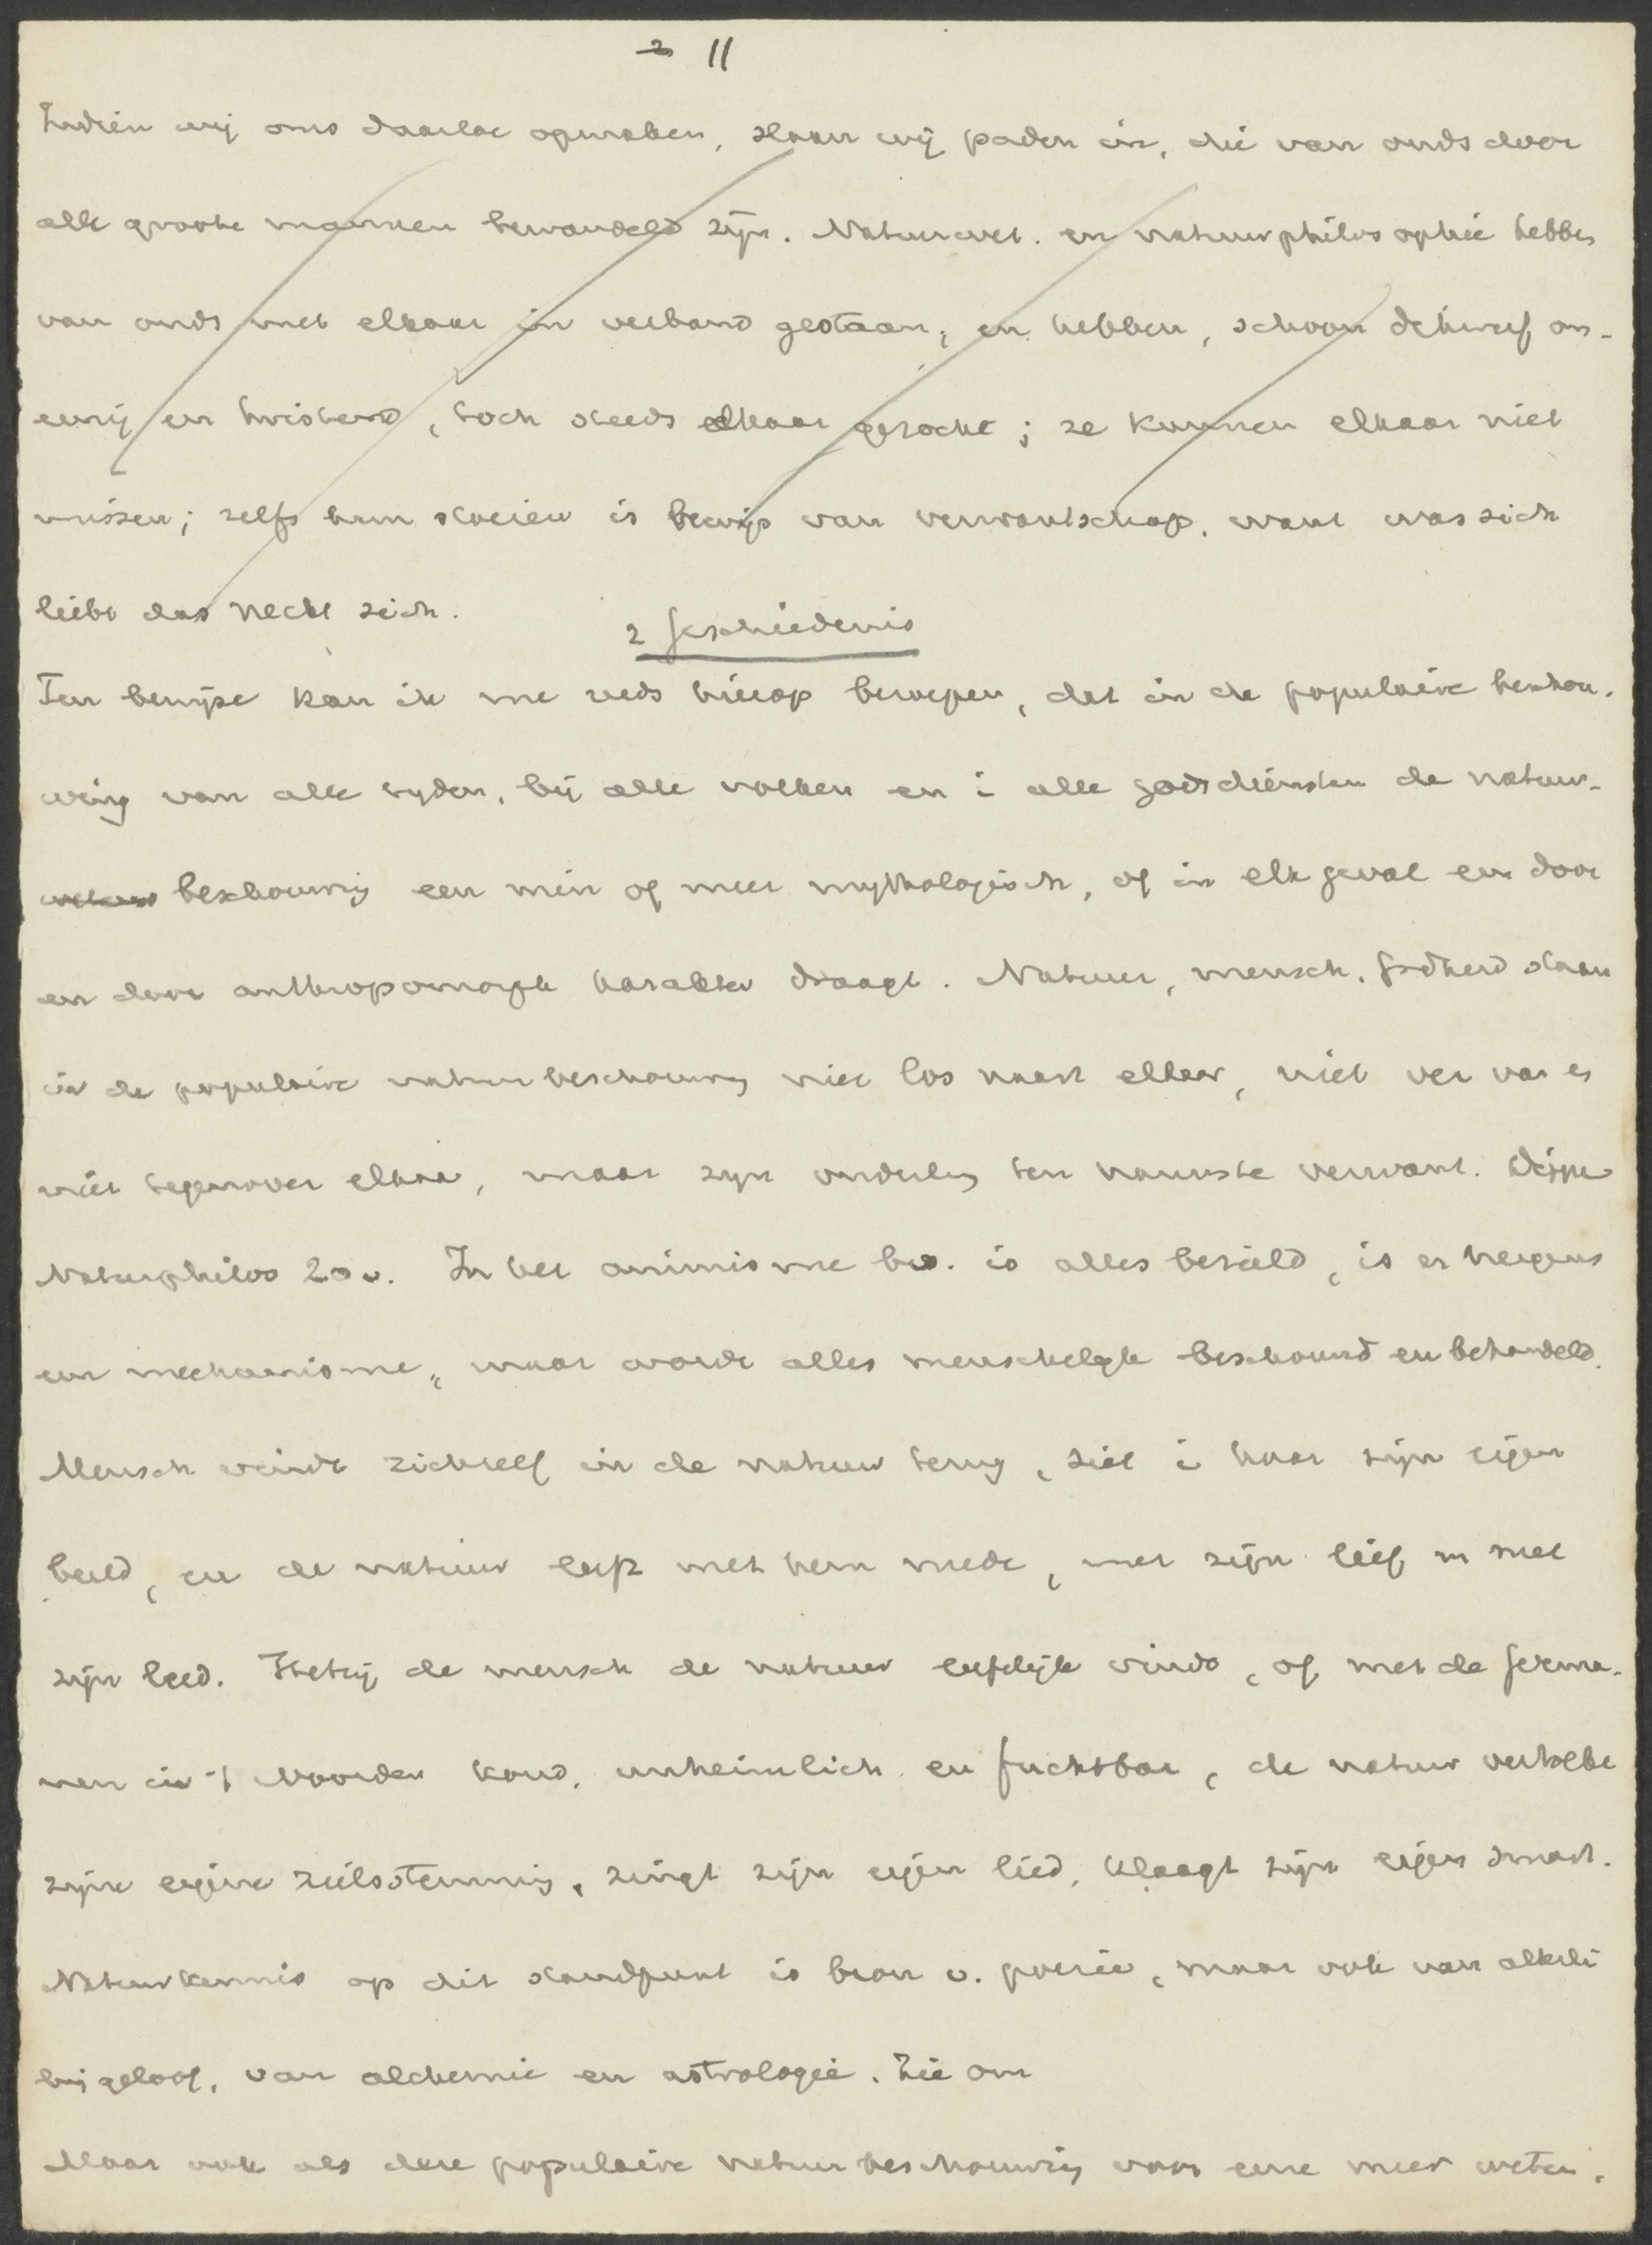 2 11
Indien wij ons daartoe opmaken, slaan wij paden in, die van ouds door
alle groote mannen bewandeld zijn. Natuurwet. en natuurphilosophie hebben
van ouds met elkaar in verband gestaan, en hebben, schoon dikwerf on-
eenig en twistend, toch steeds elkaar gezocht; ze kunnen elkaar niet
missen; zelfs hun stoeien is bewijs van verwantschap, want was sich
liebt das neckt sich.
2 Geschiedenis
Ten bewijze kan ik me reeds hierop beroepen, dat in de populaire beschou-
wing van alle tyden, bij alle volken en i alle godsdiensten de natuur-
beschouwing een min of meer mythologisch, of in elk geval een door
en door anthropomorph karakter draagt. Natuur, mensch, Godheid staan
in de populaire natuurbeschouwing niet los naast elkaar, niet ver van en
niet tegenover elkaar, maar zyn onderling ten nauwste verwant.
Naturphilos 20v. In het animisme bv. is alles bezield, is er nergens
een mechanisme, maar wordt alles menschelijk beschouwd en behandeld.
Mensch vindt zichzelf in de natuur terug, ziet i haar zijn eigen
beeld, en de natuur leeft met hem mede, met zijn lief en met
zijn leed. Hetzij de mensch de natuur liefelijk vindt, of met de Germa-
nen in 't Noorden koud, unheimlich en fuchtbar, de natuur vertolkt
zijne eigene zielsstemming, zingt zijn eigen lied, klaagt zijn eigen smart.
Natuurkennis op dit standpunt is bron v. poezie, maar ook van allerlei
bijgeloof, van alchemie en astrologie. Zie om
Maar ook als deze populaire natuurbeschouwing voor eene meer weten-